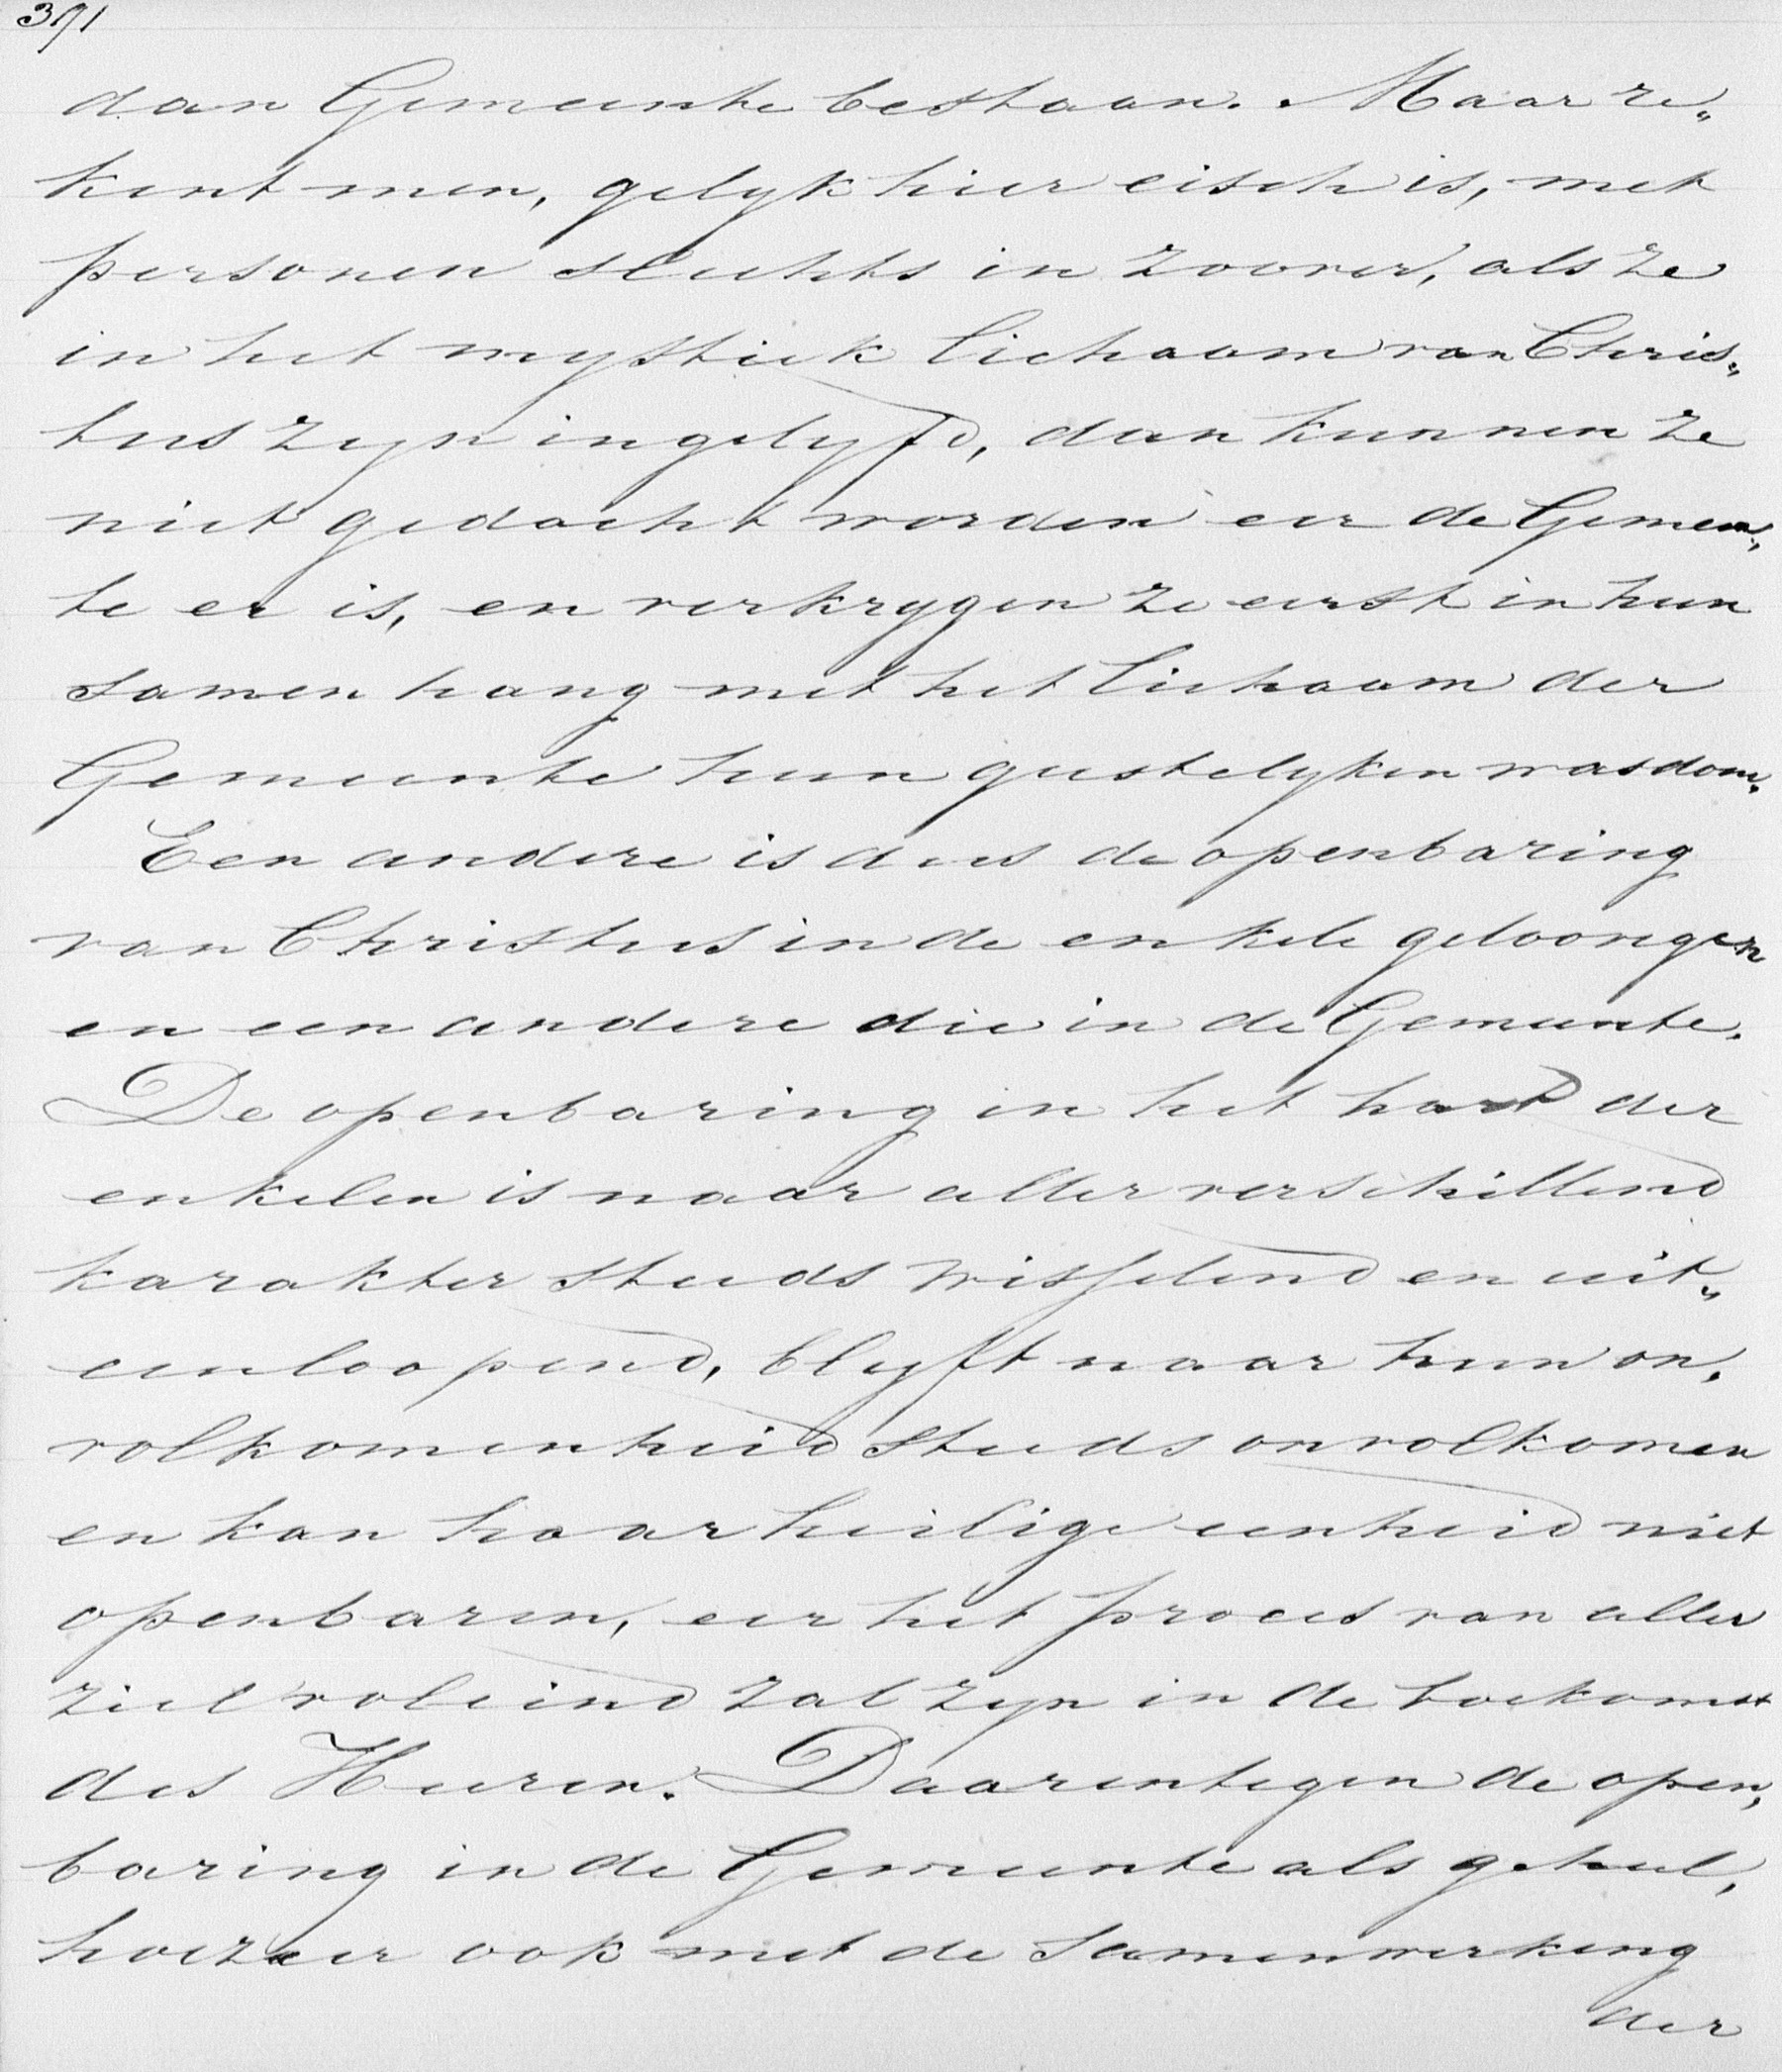 391
dan Gemeente bestaan. Maar re„
kent men, gelyk hier eisch is, met
personen slechts in zoover, als ze
in het mystiek lichaam van Chris„
tus zyn ingelyfd, dan kunnen ze
niet gedacht worden eer de Gemeen„
te er is, en verkrygen ze eerst in hun
samenhang met het lichaam der
Gemeente hun geestelyken wasdom.
Een andere is dus de openbaring
van Christus in de enkele geloovigen
en een andere die in de Gemeente.
De openbaring in het hart der
enkelen is naar aller verschillend
karakter steeds wisselend en uit„
eenloopend, blyft naar hun on„
volkomenheid steeds onvolkomen
en kan haar heilige eenheid niet
openbaren, eer het proces van aller
ziel voleind zal zyn in de toekomst
des Heeren. Daarentegen de open„
baring in de Gemeente als geheel,
hoezeer ook met de samenwerking
der